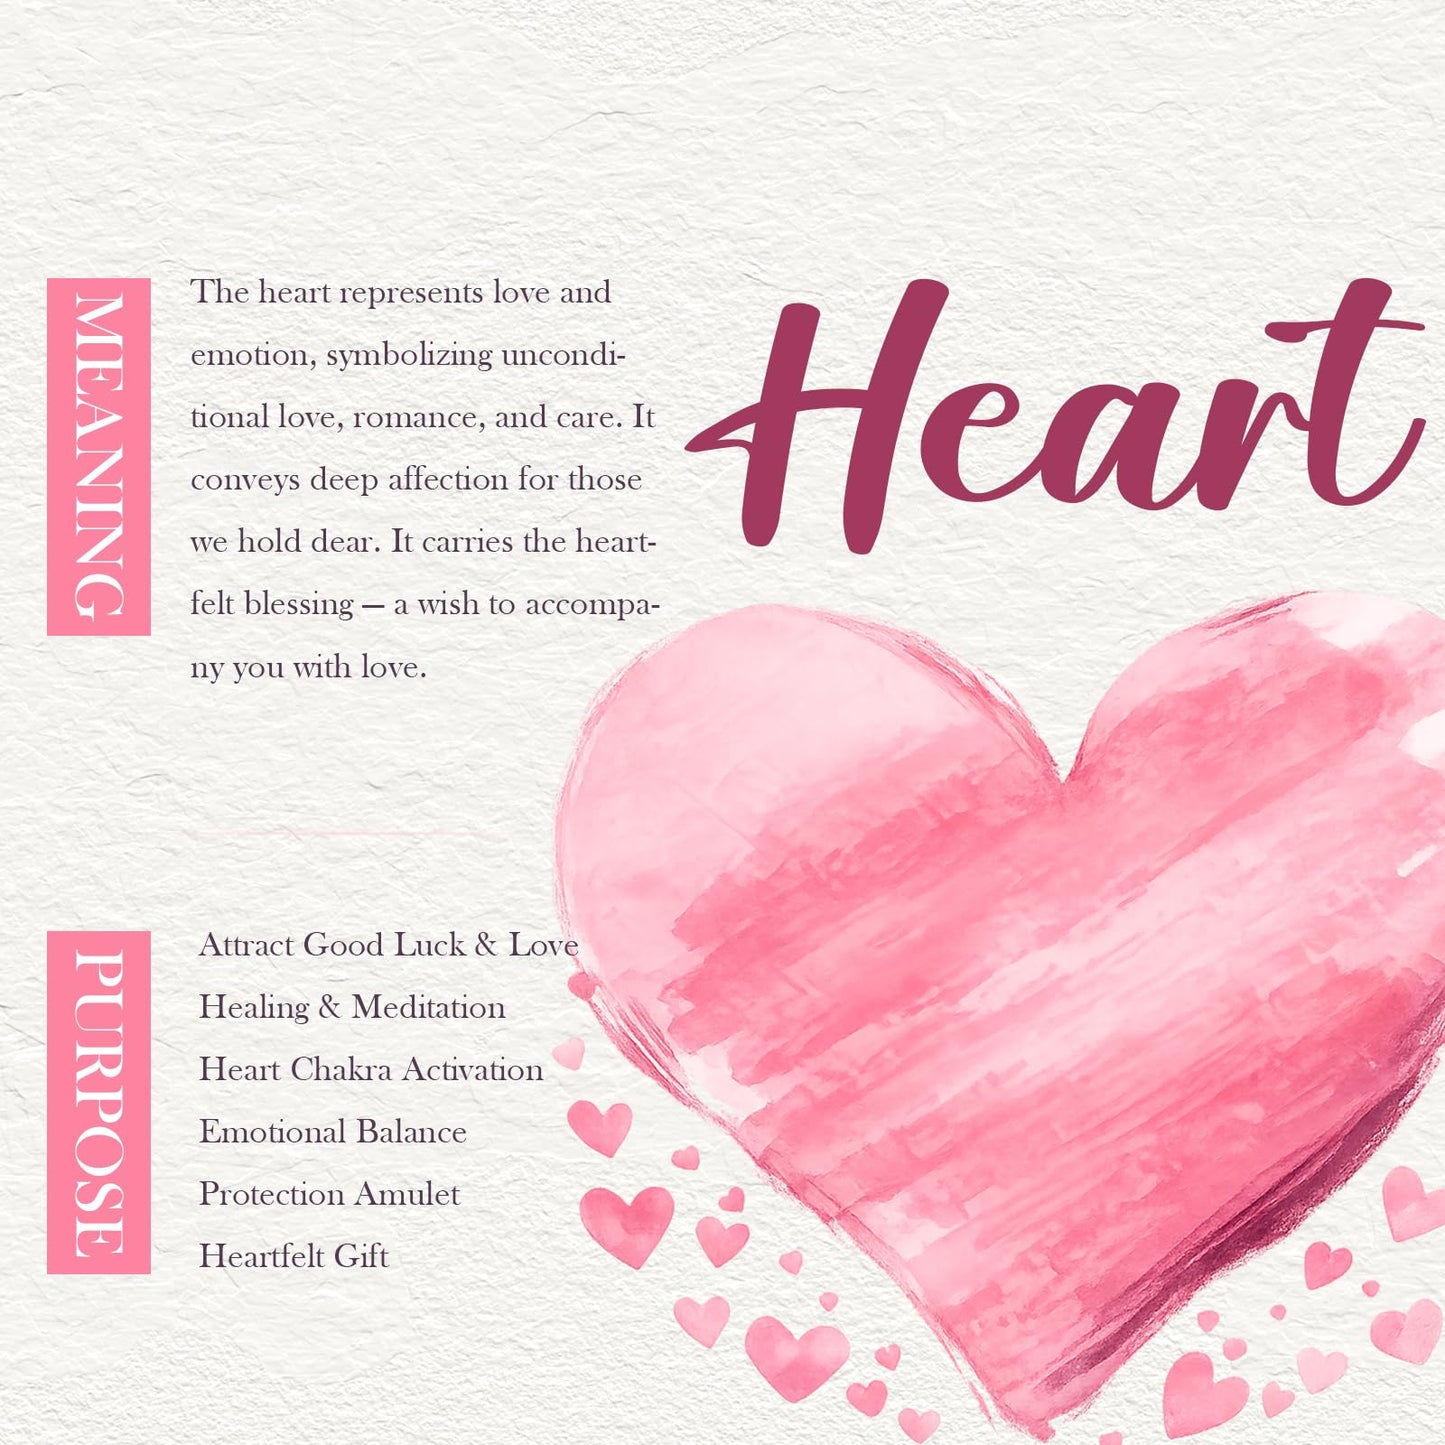 Heart
MEANING
The heart represents love and
emotion, symbolizing uncondi-
tional love, romance, and care. It
conveys deep affection for those
we hold dear. It carries the heart-
felt blessing — a wish to accompa-
ny you with love.
PURPOSE
Attract Good Luck & Love
Healing & Meditation
Heart Chakra Activation
Emotional Balance
Protection Amulet
Heartfelt Gift